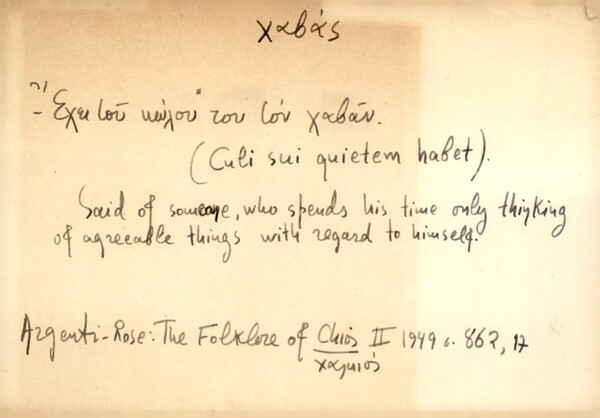 χαβάς
- Ἔχει τοῦ κώλου του τόν χαβάν.
(Culi sui quietem habet).
Said of someone, who spends his time only thinking
of agreeable things with regard to himself.
Argenti-Rose: The Folklore of Chios II 1949 σ. 862, 17